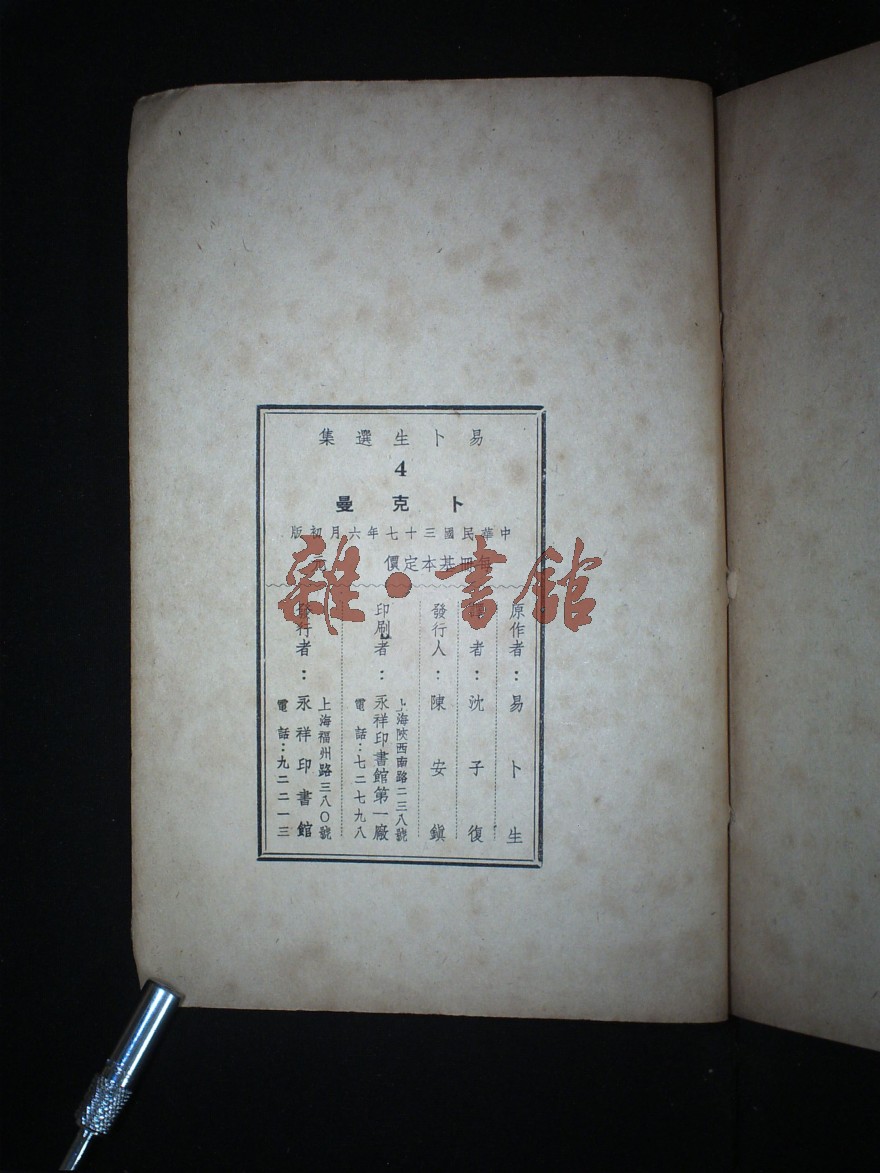 易卜生選集
4
卜克曼
中華民國三十七年六月初版
每冊基本定價 元
原作者：易卜生
譯者：沈子復
發行人：陳安鎮
上海陝西南路二三八號
印刷者：永祥印書館第一廠
電話：七二七九八
上海福州路三八〇號
發行者：永祥印書館
電話：九二二一三
雜·書館